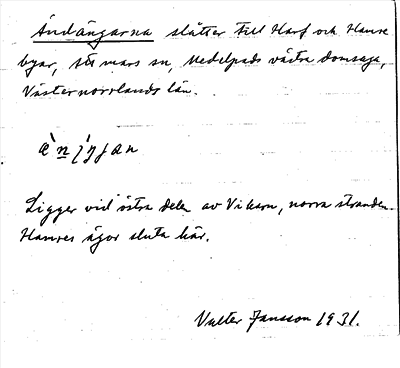 Ändängarna slåtter till Harf och Hamre
byar, Stt mars sn, Medelpads västra domsaga,
Västernorrlands län.
Ligger vid östra delen av Viken, norra stranden.
Hamres ägor sluta här.
Valter Jansson 1931.